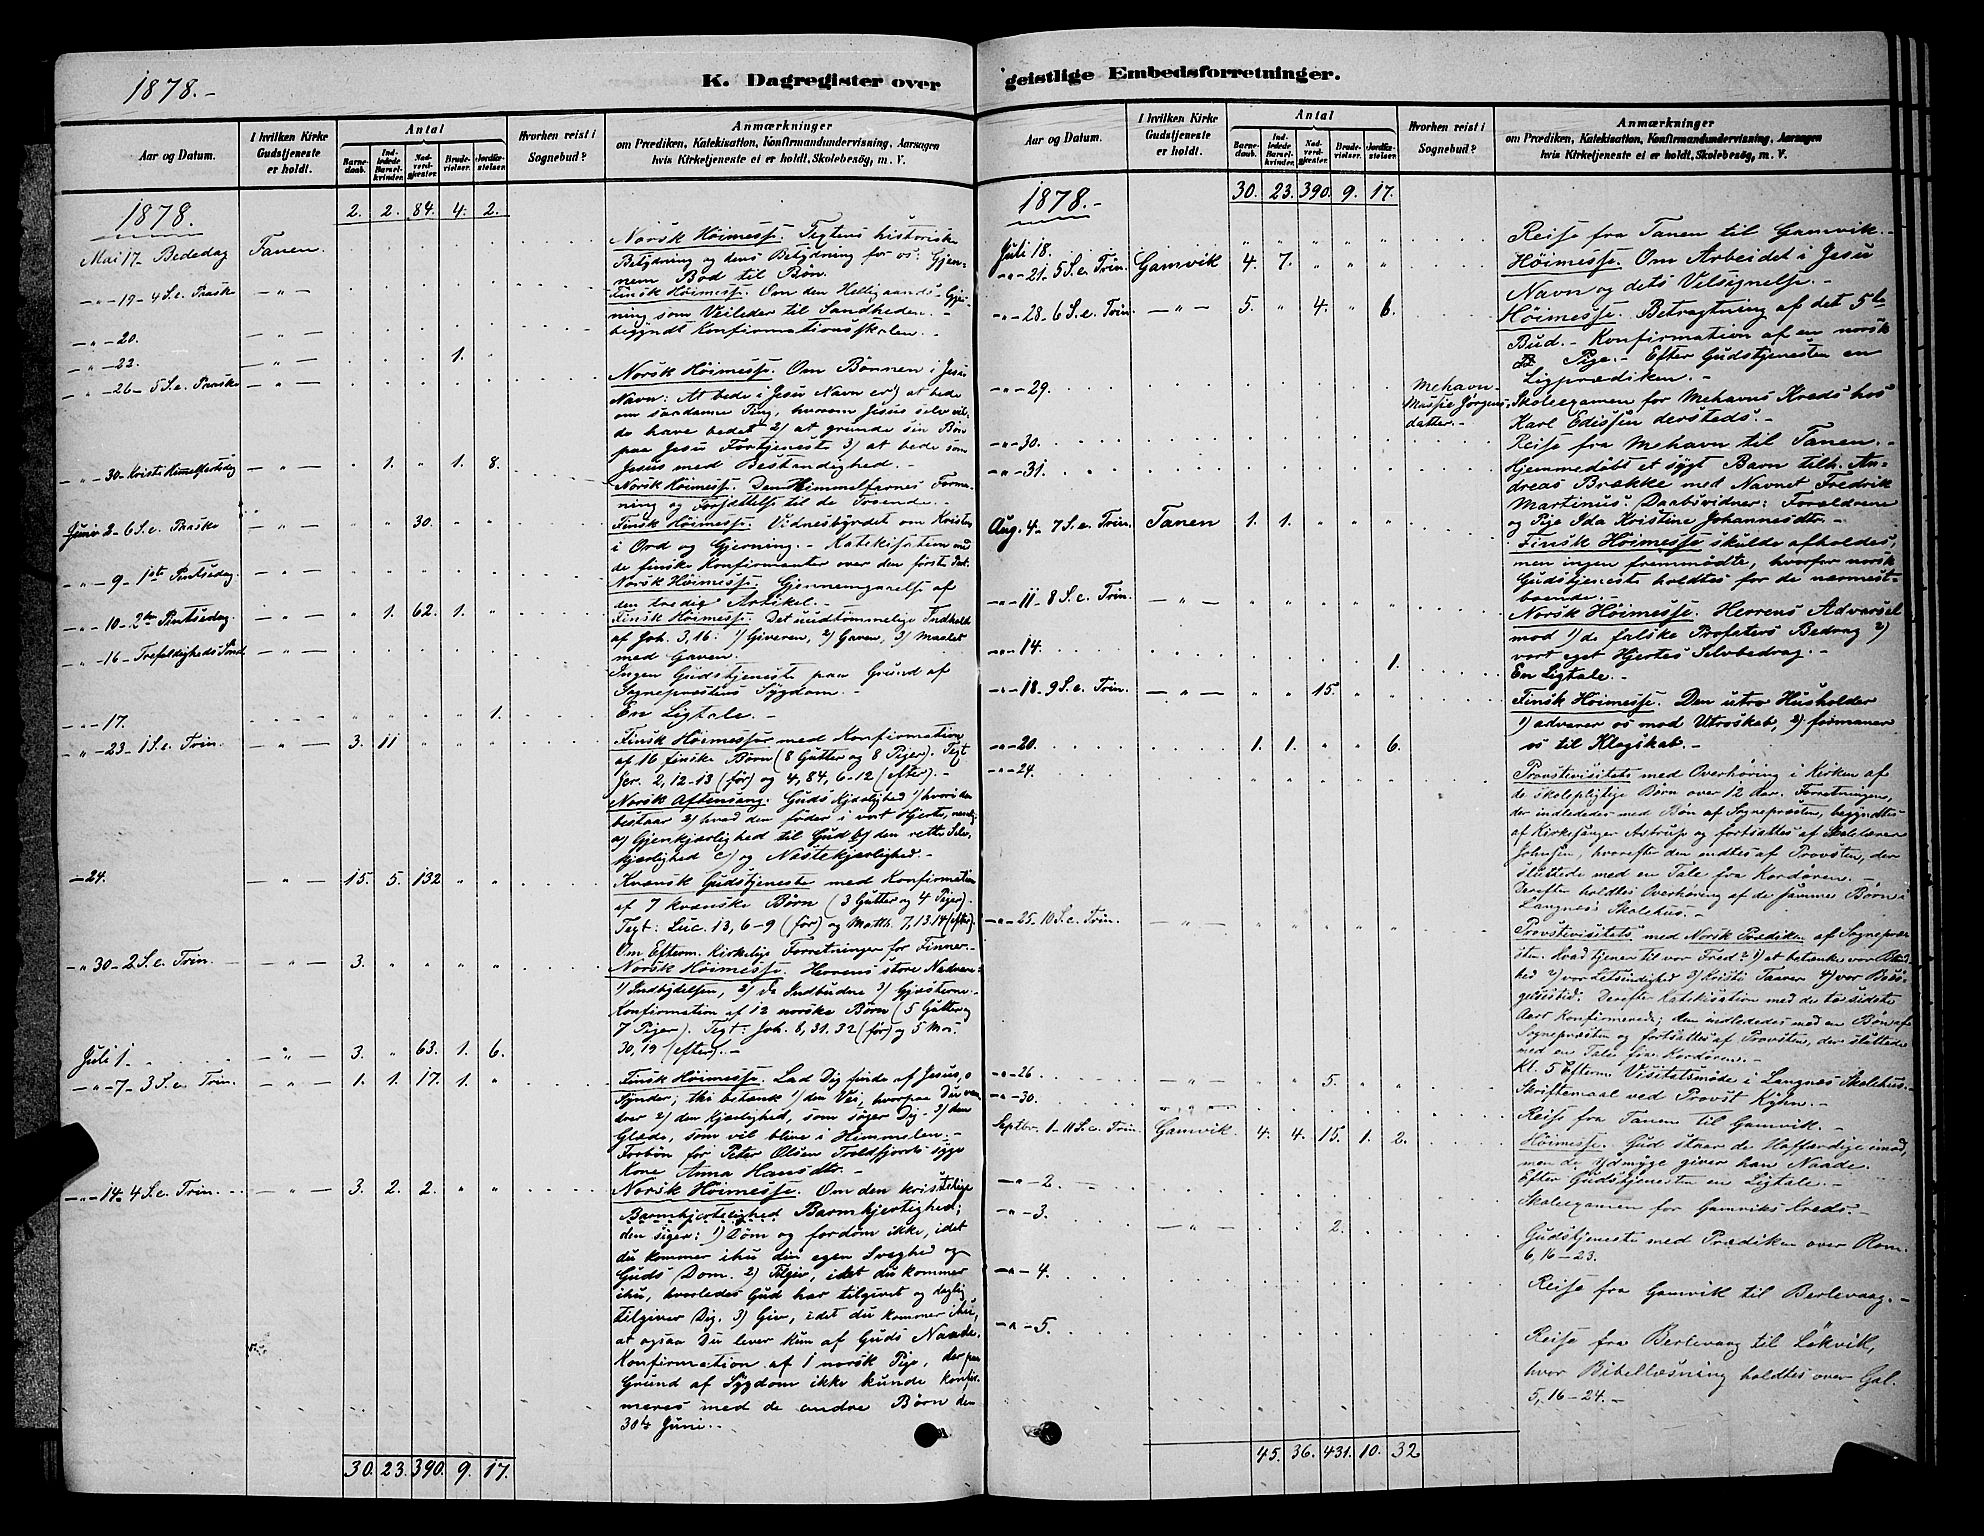 1878.-
K. Dagregister over
Aar og Datum.
I hvilken Kirke Gudstjeneste er holdt.
Antal
Barnedaab.
Indledede Barselkvinder.
Nadverdgjester.
Brudevielser.
Jordfæstelser.
Hvorhen reist i Sognebud?
Anmærkninger
om Prædiken, Katekisation, Konfirmandundervisning, Aarsagen
hvis Kirketjeneste ei er holdt, Skolebesög, m. V.
1878. 2. 2. 84. 4. 2.
Mai 17 - Bededag Tanen. Norsk Höimesse. Textens historiske
Betydning og dens Betydning for os: Gjen-
nem Bod til Bön.
-"-19-4 S. e. Paaske -"- Finsk Höimesse. Om den Helligaands Gjer-
ning som Veileder til Sandheden.
-"-20. -"- begyndt Konfirmationsskolen.
-"-22. -"- 1. "
-"-26-5 S. e. Paaske -"- Norsk Höimesse. Om Bönnen i Jesu
Navn: At bede i Jesu Navn er 1) at bede
om saadanne Ting, hvorom Jesus selv vil-
de have bedet 2) at grunde sin Bön
paa Jesu Fortjeneste 3) at bede som
Jesus med Bestandighed.-
-"-30-Kristi Himmelfartsdag -"- " 1. " 1. 8. Norsk Höimesse. Den Himmelfarnes Forma-
ning og Forjættelse til de Troende.-
Juni 2-6 S. e. Paaske -"- " " 30. " " Finsk Höimesse. Vidnesbyrdet om Kristus
i Ord og Gjerning.- Katekisation med
de finske Konfirmanter over den förste Part.
-"-9-1ste Pintsedag. -"- Norsk Höimesse. Gjennemgaaelse af
den tredje Artikel.-
-"-10-2den Pintsedag -"- " 1. 62. 1. " Finsk Höimesse. Det uudtömmelige Indhold
af Joh. 3,16: 1) Giveren, 2) Gaven, 3) Maalet
med Gaven.
-"-16-Trefoldigheds Sönd -"- Ingen Gudstjeneste paa Grund af
Sognepræstens Sygdom.-
-"-17. " " " " 1. En Ligtale.-
-"-23-1 S. e. Trin. -"- 3. 11 " " " Finsk Höimesse med Konfirmation
af 16 finske Börn (8 Gutter og 8 Piger). Text
Jer. 2,12-13 (för) og 4, 84, 6-12 (efter).-
Norsk Aftensang: Guds Kjærlighed 1) hvori den
bestaar 2) hvad den föder i vort Hjerte, nemlig
a) Gjenkjærlighed til Gud b) den rette Selv-
kjærlighed c) og Næstekjærlighed.-
-24. -"- 15. 5. 132 " " Kvænsk Gudstjeneste med Konfirmation
af 7 kvænske Börn (3 Gutter og 4 Piger).
Text: Luc. 13, 6-9 (för) og Matth. 7, 13.14 (efter).
Om Efterm. Kirkelige Forretninger for Finner.-
-"-30-2 S. e. Trin. 3. " " " " Norsk Höimesse. Herrens store Nadvere:
1) Indbydelsen, 2) de Indbudne 3) Gjæsterne.-
Konfirmation af 12 norske Börn (5 Gutter og
7 Piger). Text: Joh. 8, 31. 32 (för) og 5 Mos.
Juli 1. -"- 3. " 63. 1. 6. 30,19 (efter).-
-"-7-3 S. e. Trin. -"- 1. 1. 17. 1. " Finsk Höimesse. Lad Dig finde af Jesus, o
Synder; thi betænk 1) den Vei, hvorpaa Du van-
drer 2) den Kjærlighed, som söger Dig 3) den
Glæde, som vil blive i Himmelen.-
Forbön for Peter Olsen Troldfjords syge
Kone Anna Hansdtr.-
-"-14-4 S. e. Trin. -"- 3. 2. 2. " " Norsk Höimesse. Om den kristelige
Barmhjertelighed Barmhjertighed;
den siger: 1) Döm og fordöm ikke, idet
du kommer ihu din egen Svaghed og
Guds Dom. 2) Tilgiv, idet du kommer
ihu, hvorledes Gud har tilgivet og daglig
tilgiver Dig. 3) Giv, idet du kommer ihu,
at ogsaa Du lever kun af Guds Naade.
Konfirmation af 1 norsk Pige, der paa
Grund af Sygdom ikke kunde konfir-
meres med de andre Börn den
30te Juni.-
30. 23. 390. 9. 17.
geistlige Embedsforretninger.
Aar og Datum.
I hvilken Kirke Gudstjeneste er holdt.
Antal
Barnedaab.
Indledede Barselkvinder.
Nadverdgjester.
Brudevielser.
Jordfæstelser.
Hvorhen reist i Sognebud?
Anmærkninger
om Prædiken, Katekisation, Konfirmandundervisning, Aarsagen
hvis Kirketjeneste ei er holdt, Skolebesög, m. V.
1878.- 30. 23. 390. 9. 17.
Juli 18. " " " " " Reise fra Tanen til Gamvik.-
-"-21. 5 S. e. Trin. Gamvik 4. 7. " " " Höimesse. Om Arbeidet i Jesu
Navn og dets Velsignelse.-
-"-28-6 S. e. Trin. -"- 5. " 4. " 6. Höimesse. Betragtning af det 5te
Bud.- Konfirmation af en norsk
Pige.- Efter Gudstjenesten en
Ligprædiken.-
-"-29. Mehavn- Massie Jörgensdatter.- Skoleexamen for Mehavns Kreds hos
Karl Edissen dersteds.-
-"-30. Reise fra Mehavn til Tanen.-
-"-31. Hjemmedöbt et sygt Barn tilh. An-
dreas Brække med Navnet Fredrik
Martinus. Daabsvidner: Forældrene
og Pige Ida Kristine Johannesdtr.-
Aug. 4-7 S. e. Trin. Tanen 1. 1. " " " Finsk Höimesse skulde afholdes,
men ingen fremmödte, hvorfor norsk
Gudstjeneste holdtes for de nærmest-
boende.-
-"-11-8 S. e. Trin. -"- " " " " " Norsk Höimesse. Herrens Advarsel
mod 1) de falske Profeters Bedrag 2)
vort eget Hjertes Selvbedrag.-
-"-14. 1. En Ligtale.-
-"-18-9 S. e. Trin. -"- " " 15. " " Finsk Höimesse. Den utro Husholder
1) advarer os mod Utroskab, 2) formaner
os til Klogskab.-
-"-20. 1. 1. " " 6.
-"-24. " " " " " Provstevisitats med Overhöring i Kirken af
de skolepligtige Börn over 12 Aar. Forretningen,
der indlededes med Bön af Sognepræsten, begyndtes
af Kirkesanger Astrup og fortsattes af Skolelærer
Johnsen, hvorefter den endtes af Provsten, der
sluttede med en Tale fra Kordören.-
Derefter holdtes Overhöring af de samme Börn i
Langnæs Skolehus.-
-"-25-10 S. e. Trin. -"- " " " " " Provstevisitats med Norsk Prædiken af Sognepræ-
sten. Hvad tjener til vor Fred? 1) at betænke vor Blind-
hed 2) vor Letsindighed 3) Kristi Taarer 4) vor Besö-
gelsestid. Derefter Katekisation med de to sidste
Aars Konfirmerede; den indlededes med en Bön af
Sognepræsten og fortsattes af Provsten, der sluttede
med en Tale fra Kordören.-
Kl. 5 Efterm. Visitatsmöde i Langnæs Skolehus.
-"-26 -"- " " 5. " " Skriftemaal ved Provst Kyhn.-
-"-30. Reise fra Tanen til Gamvik.-
Septbr. 1-11 S. e. Trin. Gamvik. 4. 4. 15. 1. 2. Höimesse. Gud staar de Hoffærdige imod,
men de Ydmyge giver han Naade.
Efter Gudstjenesten en Ligtale.-
-"-2. Skoleexamen for Gamviks Kreds.-
-"-3. -"- 2. Gudstjeneste med Prædiken over Rom.
6, 16-23.
-"-4. Reise fra Gamvik til Berlevaag.-
-"-5. Reise fra Berlevaag til Lökvik,
hvor Bibellæsning holdtes over Gal.
5, 16-24.-
45. 36. 431. 10. 32